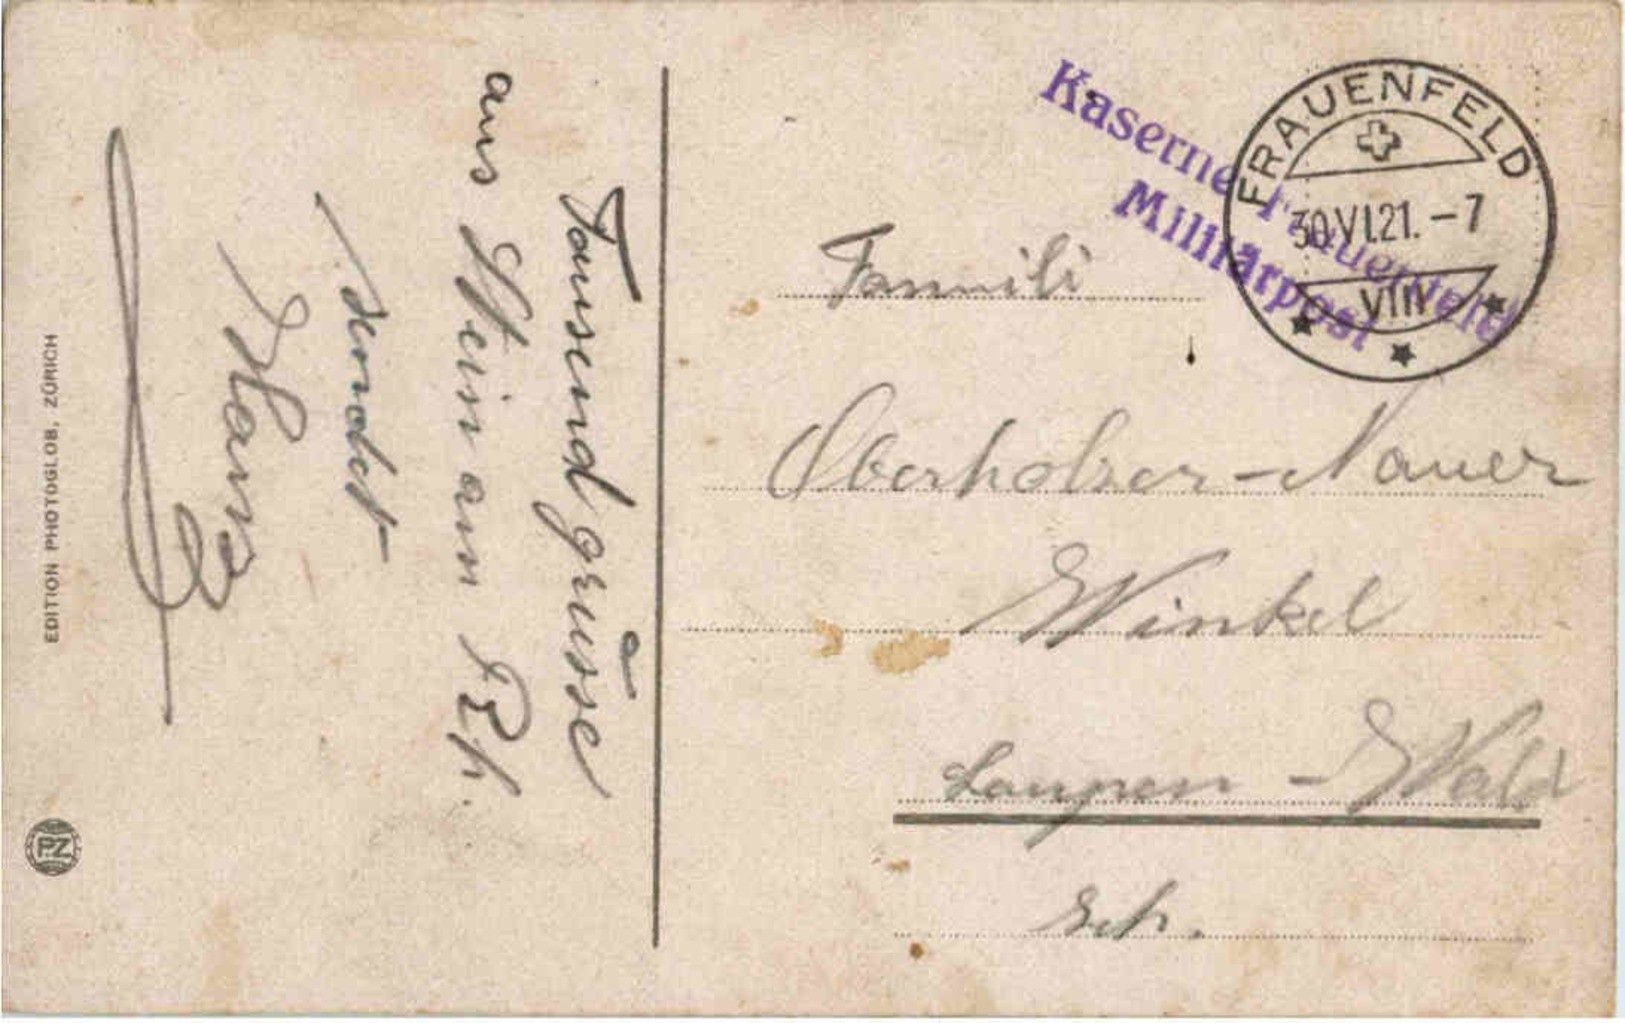 Tausend grüsse
aus Stein am Rh.
sendet
Hans
EDITION PHOTOGLOB, ZÜRICH
PZ
Kaserne Frauenfeld
Militärpost
FRAUENFELD
30.VI.21.-7
VIII
Familli
Oberholzer-Nauer
Winkel
Laupen - Wald
Zch.